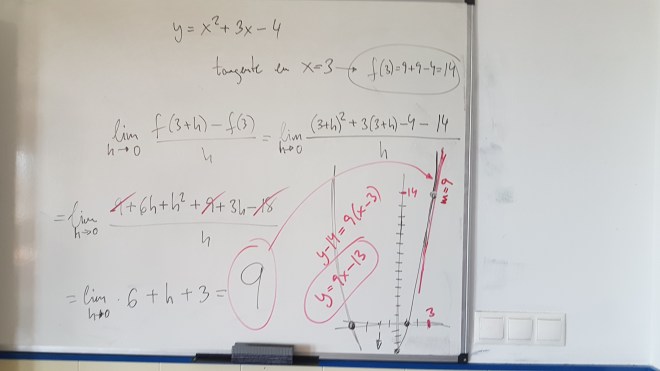 y = x² + 3x - 4
tangente en x=3 → f(3)=9+9-4=14
lim h→0 f(3+h) - f(3) / h = lim h→0 (3+h)² + 3(3+h) - 4 - 14 / h
= lim h→0 9 + 6h + h² + 9 + 3h - 18 / h
= lim h→0 6 + h + 3 = 9
y-14 = 9(x-3)
y = 9x-13
14
m=9
3